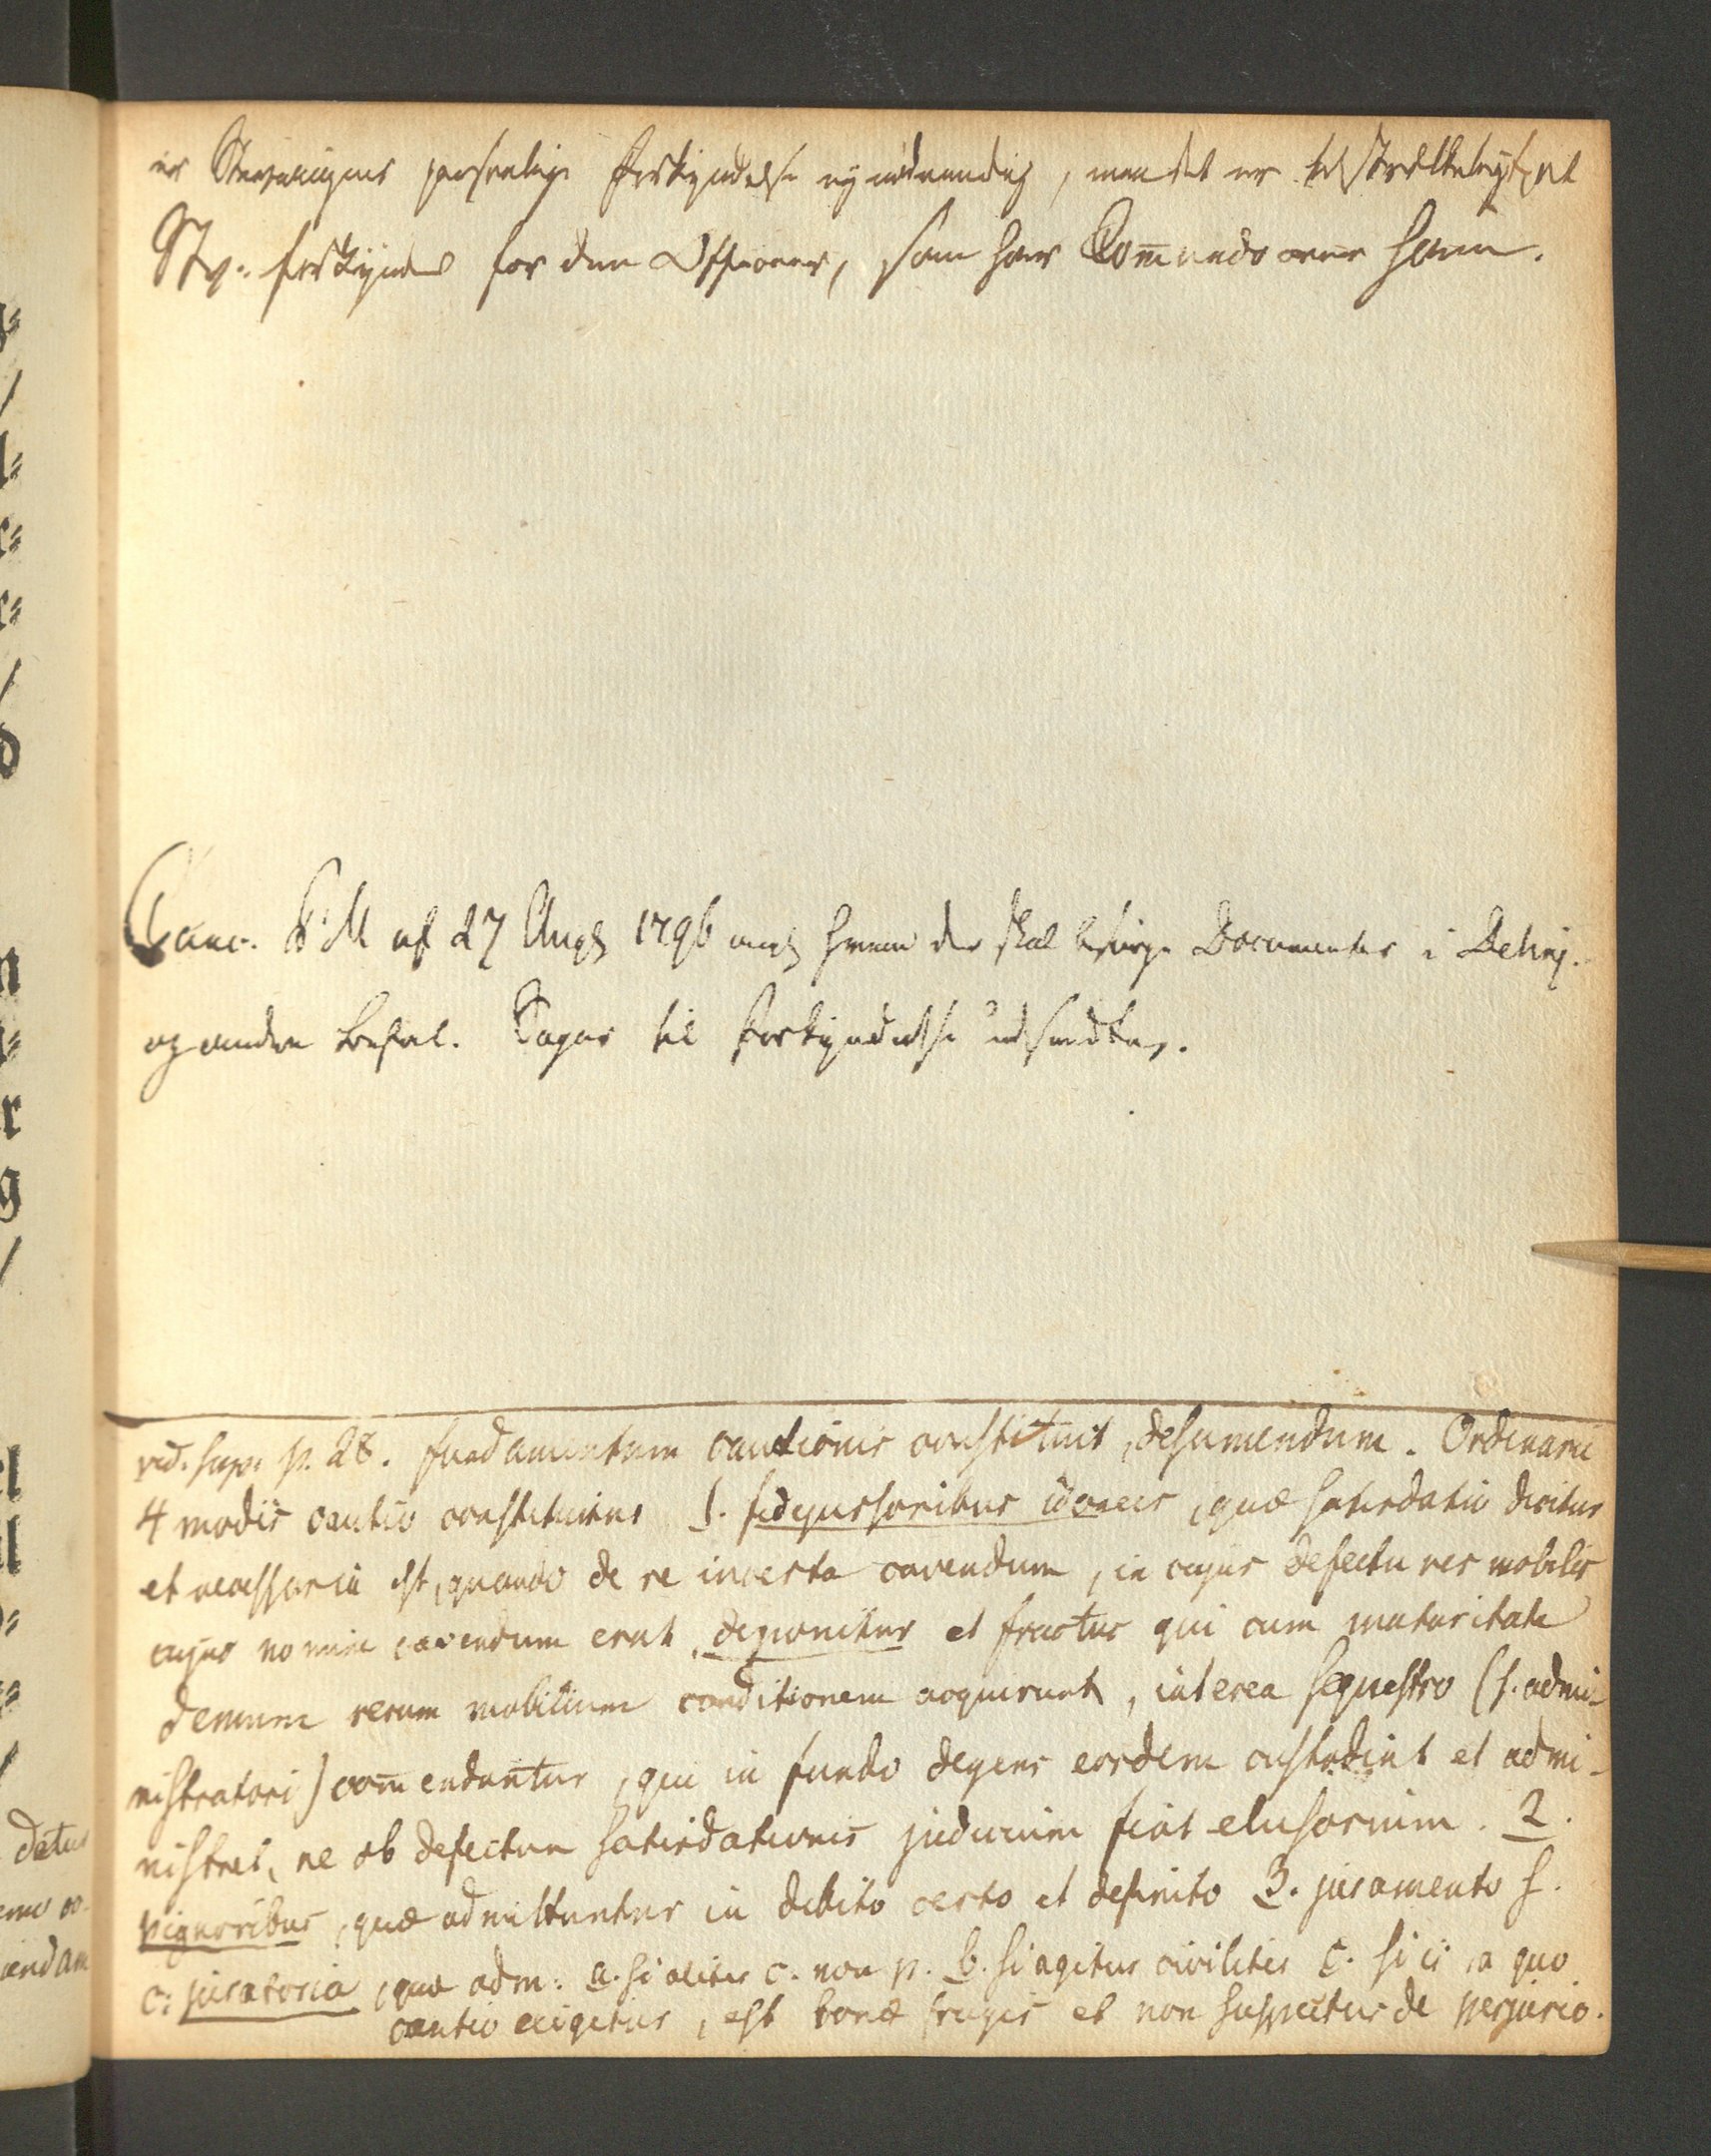 er Stævningens personlige Forkyndelse ey nødvendig, men det er tilstrækkeligt, at
Stv: forkyndes for den Officeer, som har Com̅ando over ham.
Canc. P: M af 27 Aug 1796 ang hvem der skal besørge Documenter i Delinq.
og anden befal. Sager til Forkyndelse udsendte.
vid. sup. p. 28. fundamentum cautionis constituit, desumendum. Ordinarie
4 modis cautio constituitur 1. fidejussoribus idoneis, quæ satisdatio dicitur
et necessaria est, quando de re incerta cavendum, in cujus defectu res mobiles
cujus nomine cavendum erat, deponitur et fructus qui cum maturitate
demum rerum mobilium conditionem acquirunt, interea sequestro (s. admi-
nistratori) com̅endantur, qui in fundo degens eosdem custodiat et admi-
nistret, ne ob defectum satisdationis judicium fiat elusorium. 2.
pignoribus, quæ admittuntur in debito certo et definito 3. juramento s.
c: juratoria, quæ adm: a. si aliter c. non p. b. si agitur civiliter c. si is, a quo
cautio exigitur, est bonæ frugis et non suspectus de perjurio.
detur
endam